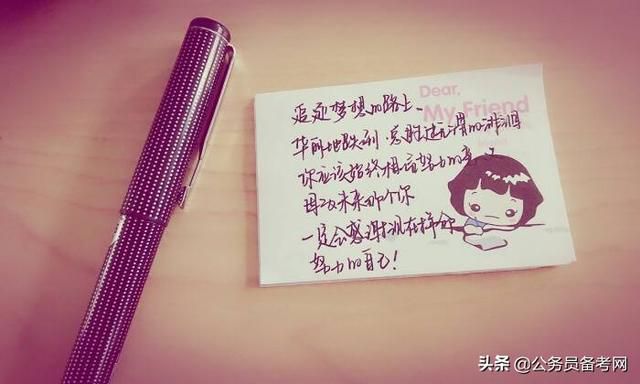 Dear,
My Friend
追逐梦想的路上、
华丽地跌倒.总胜过无谓的徘徊
你应该始终相信努力的意
因为未来那个你
一定会感谢现在拼命
努力的自己!
头条 @公务员备考网